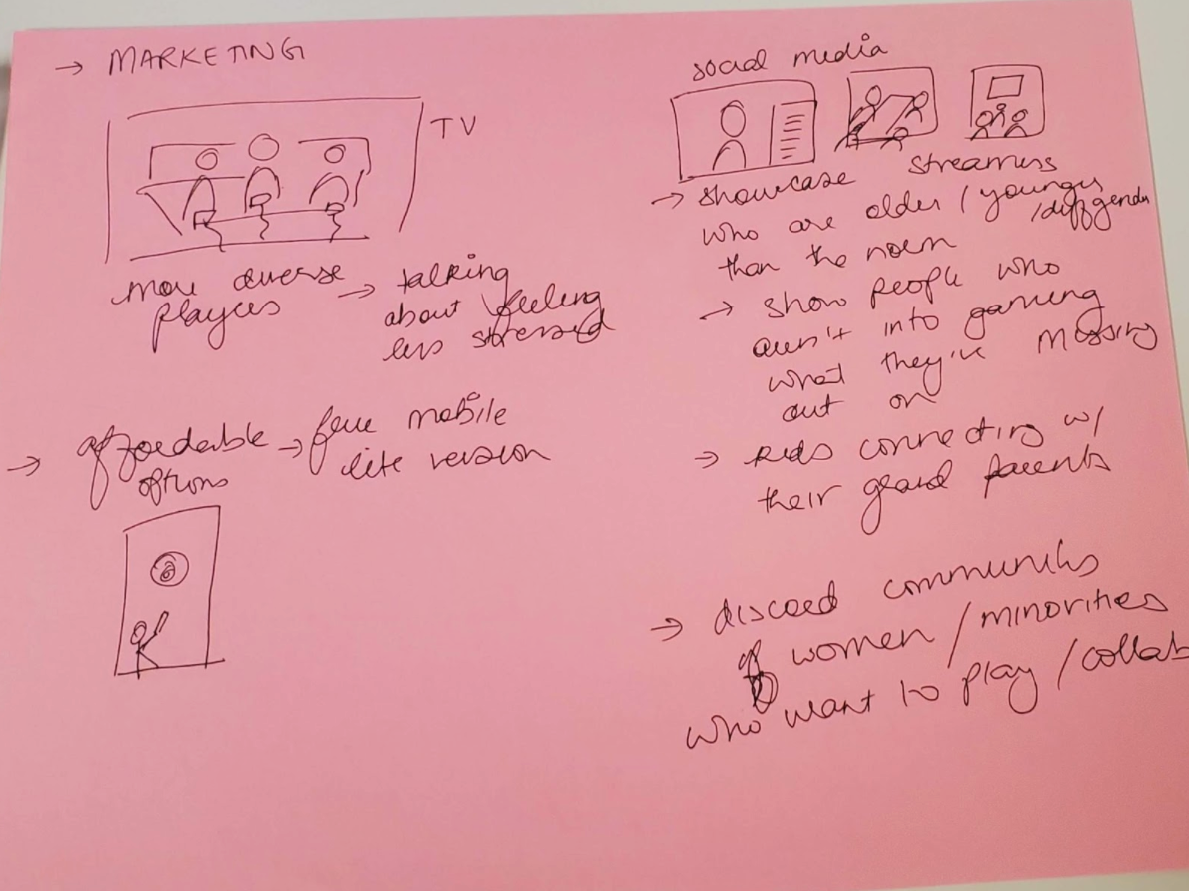 → MARKETING
TV
more diverse
players
→ talking
about feeling
less stressed
→ affordable
options
→ free mobile
lite version
social media
→ showcase streamers
who are older / younger
/ diff gender
than the norm
→ show people who
aren't into gaming
what they're missing
out on
→ kids connecting w/
their grand parents
→ discord communities
of women / minorities
who want to play / collab